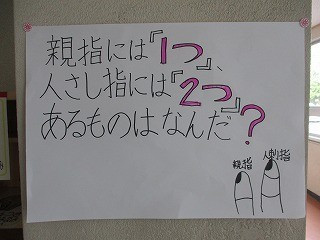 親指には『1つ』、
人さし指には『2つ』
あるものはなんだ?
親指
人刺指